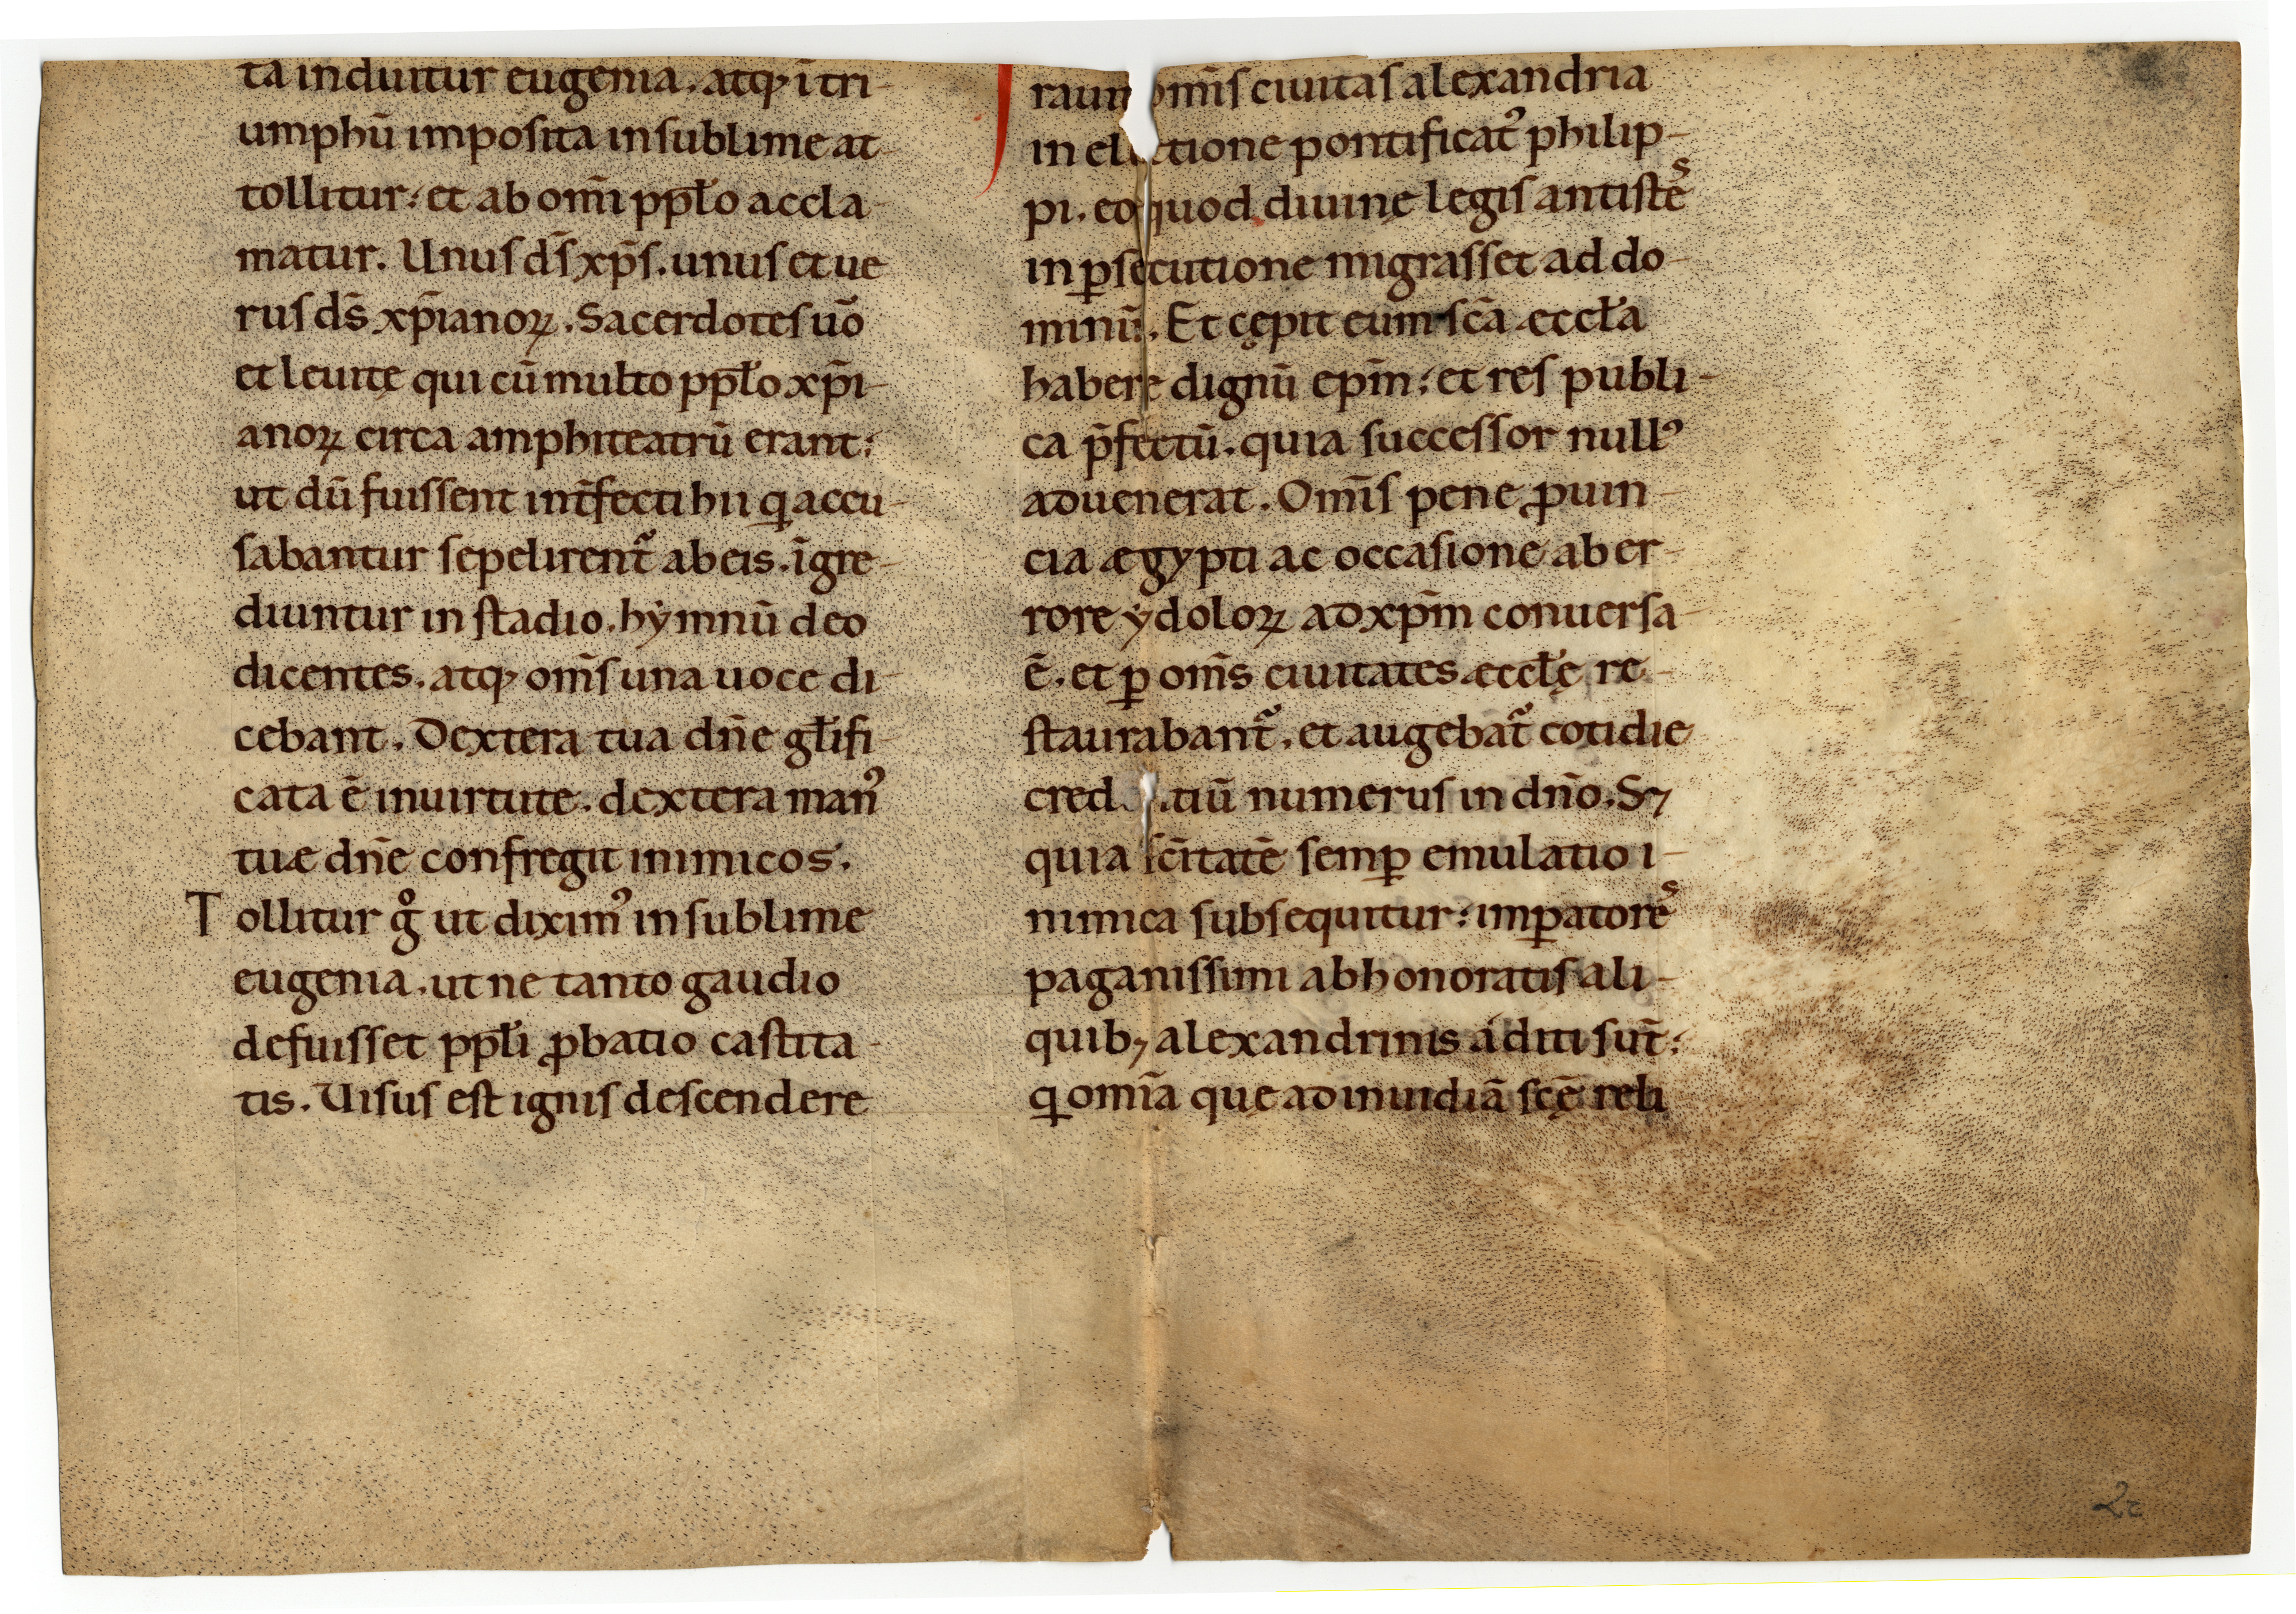 ta induitur eugenia. atq; ī tri-
umphū imposita in sublime at-
tollitur: et ab om̄i ppl̄o accla-
matur. Unus ds̄ xp̄s. unus et ue
rus ds̄ xp̄ianoꝝ. Sacerdotes uō
et leuitę qui cū multo ppl̄o xp̄i-
anoꝝ circa amphiteatrū erant:
ut dū fuissent int̄fecti hii ꝗ accu-
sabantur sepelirent᷑ ab eis. īgre-
diuntur in stadio. hẏmnū deo
dicentes. atq; om̄s una uoce di-
cebant. Dextera tua dn̄e gl̄ifi-
cata ē in uirtute. dextera manꝰ
tuæ dn̄e confregit inimicos.
Tollitur gͦ ut diximꝰ in sublime
eugenia. ut ne tanto gaudio
defuisset ppl̄i ꝓbatio castita-
tis. Uisus est ignis descendere
om̄is ciuitas alexandria
in electione pontificatꝰ philip-
pi. eo quod diuinę legis antistes
in ꝑsecutione migrasset ad do-
minū. Et cępit eum sc̄a æccl̄a
habere dignū ep̄m: et res publi-
ca p̄fectū. quia successor nullꝰ
aduenerat. Om̄is pene ꝓuin-
cia ægypti ac occasione ab er-
rore ẏdoloꝝ ad xp̄m conuersa-
ē. et ꝑ om̄s ciuitates æccl̄ę re-
staurabant᷑. et augebat᷑ cotidie
tiū numerus in dn̄o. Sꝫ
quia sc̄itatē semꝑ emulatio i-
nimica subsequitur: imꝑatores
paganissimi ab honoratis ali-
quibꝫ alexandrinis aditi sut̄:
ꝗ om̄ia quę ad inuidiā sc̄ę reli
2c